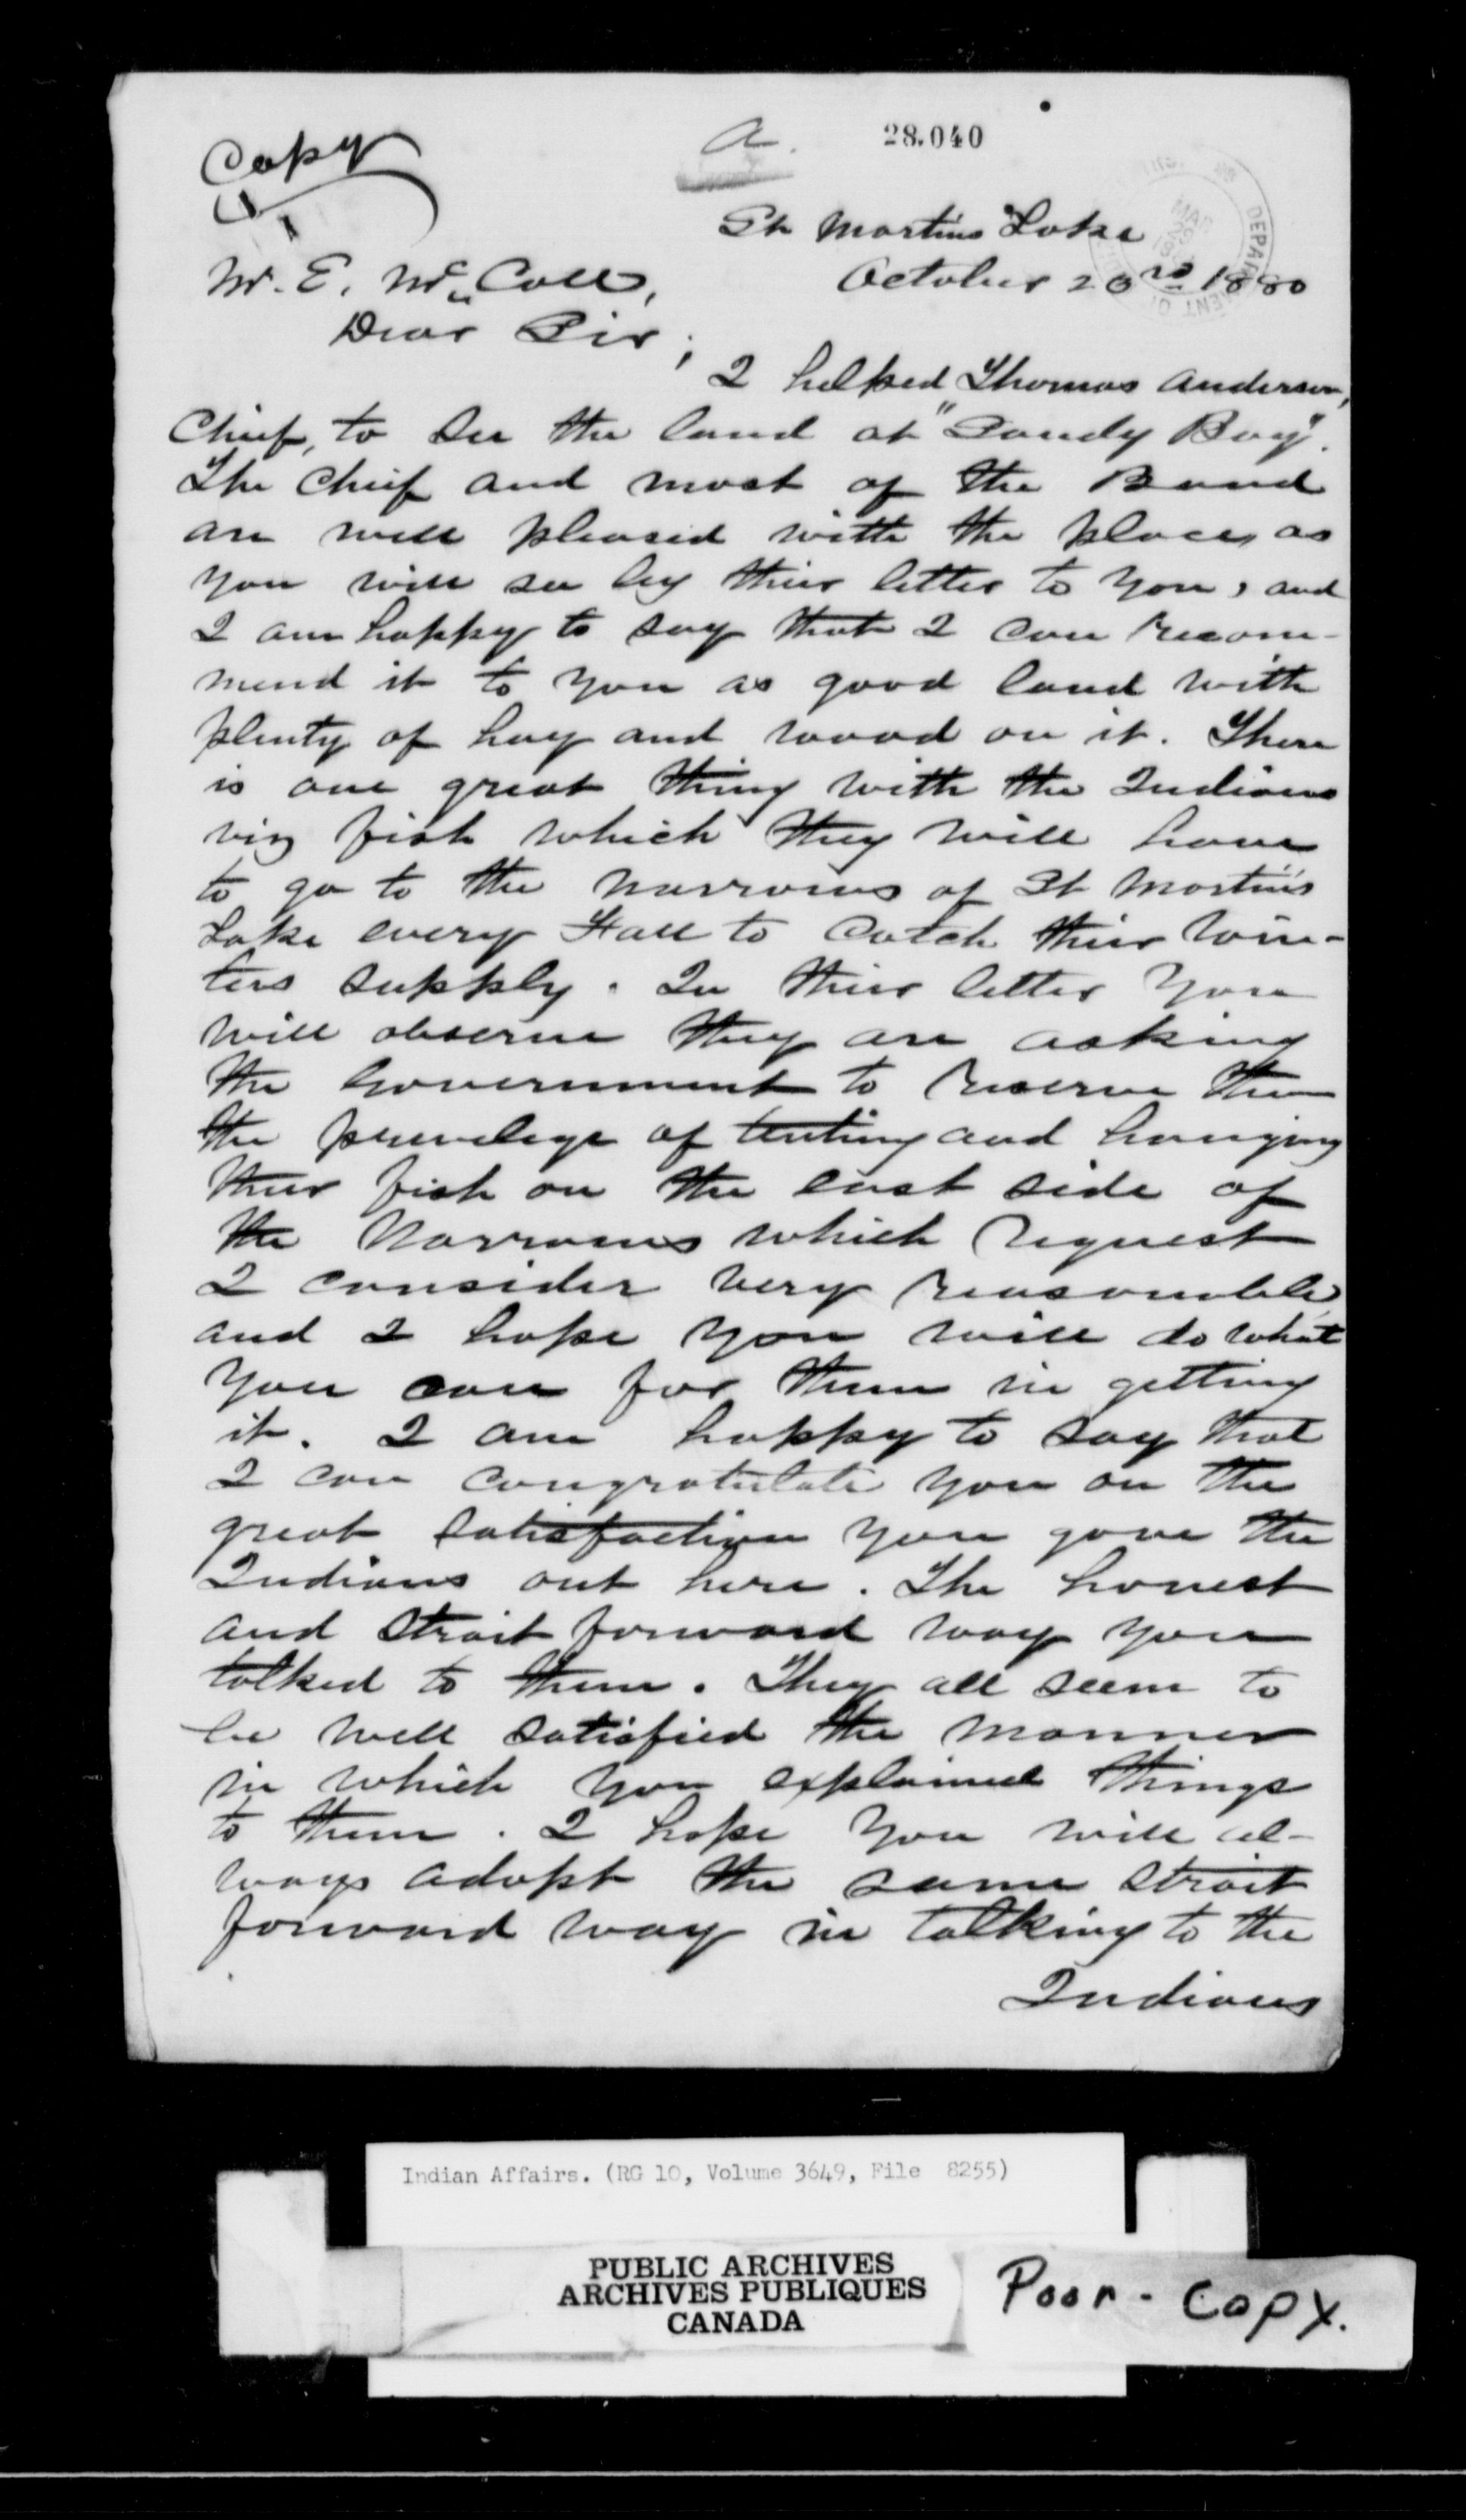 Copy
a.
28.040
St Martins Lake
October 20th 1880
Mr. E. McColl,
Dear Sir,
I helped Thomas Anderson,
Chief, to see the land at "Sandy Bay".
The Chief and most of the Band
are well pleased with the place, as
you will see by their letter to you, and
I am happy to say that I can recom-
mend it to you as good land with
plenty of hay and wood on it. There
is one great thing with the Indians
viz fish which they will have
to go to the narrows of St Martin's
Lake every Fall to catch their win-
ters supply. In their letter you
will observe they are asking
the Government to reserve them
the privelege of tenting and hanging
their fish on the east side of
the Narrows which request
I consider very reasonable
and I hope you will do what
you can for them in getting
it. I am happy to say that
I can congratulate you on the
great satisfaction you gave the
Indians out here. The honest
and strait forward way you
talked to them. They all seem to
be well satisfied the manner
in which you explained things
to them. I hope you will al-
ways adopt the same strait
forward way in talking to the
Indians
Indian Affairs. (RG 10, Volume 3649, File 8255)
PUBLIC ARCHIVES
ARCHIVES PUBLIQUES
CANADA
Poor - Copy.